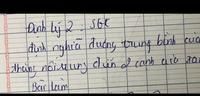 Định lý 2. SGK
định nghĩa đường trung bình của
thẳng nối trung điểm 2 cạnh của
Bài làm